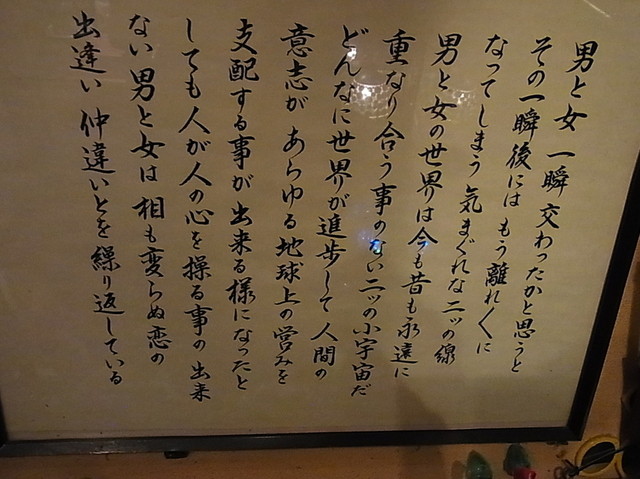 男と女 一瞬 交わったかと思うと
その一瞬後には もう離れ〱に
なってしまう 気まぐれな二ッの線
男と女の世界は今も昔も永遠に
重なり合う事のない二ッの小宇宙だ
どんなに世界が進歩して 人間の
意志が あらゆる地球上の営みを
支配する事が出来る様になったと
しても人が人の心を操る事の出来
ない男と女は相も変らぬ恋の
出逢い 仲違いとを繰り返している